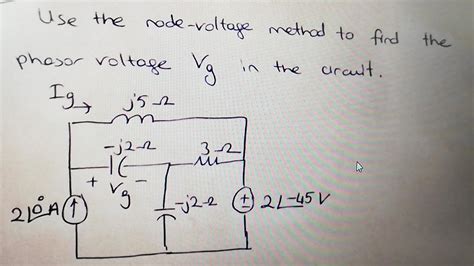 Use the node-voltage method to find the
phasor voltage Vg in the circuit.
Ig →
j5 Ω
-j2 Ω
3 Ω
+ Vg -
2∠0° A
-j2 Ω
2∠-45 V